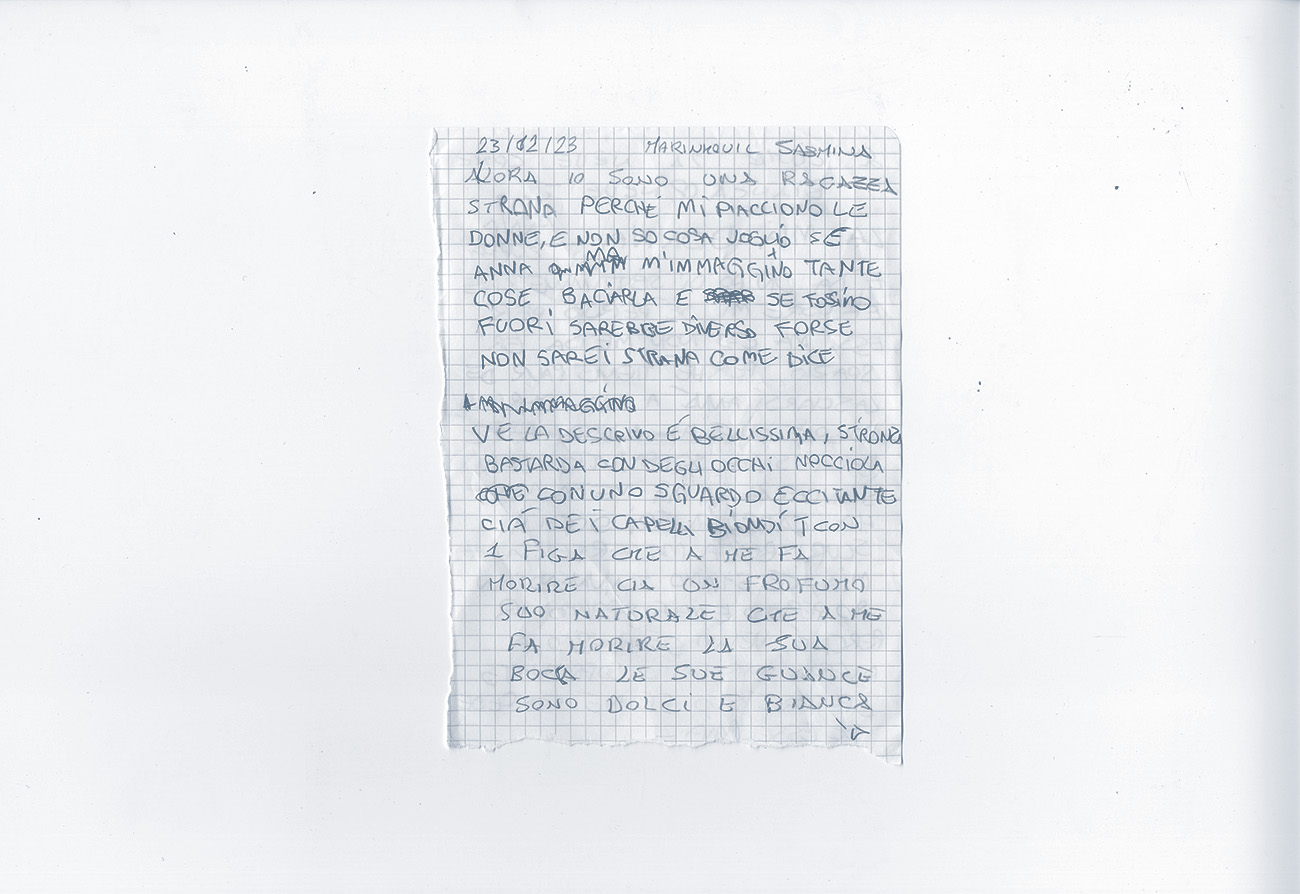 23/12/23 MARINKOVIC SABMINA
ALLORA IO SONO UNA RAGAZZA
STRANA PERCHÉ MI PIACCIONO LE
DONNE, E NON SO COSA VOGLIO SE
ANNA MA M'IMMAGGINO TANTE
COSE BACIARLA E SE FOSIMO
FUORI SAREBBE DIVERSO FORSE
NON SAREI STRANA COME DICE
VE LA DESCRIVO É BELLISSIMA, STRONZA
BASTARDA CON DEGLI OCCHI NOCCIOLA
CON UNO SGUARDO ECCITANTE
CIÁ DEI CAPELLI BIONDI CON
1 FIGA CHE A ME FA
MORIRE CIA UN PROFUMO
SUO NATURALE CHE A ME
FA MORIRE LA SUA
BOCCA LE SUE GUANCE
SONO DOLCI E BIANCA